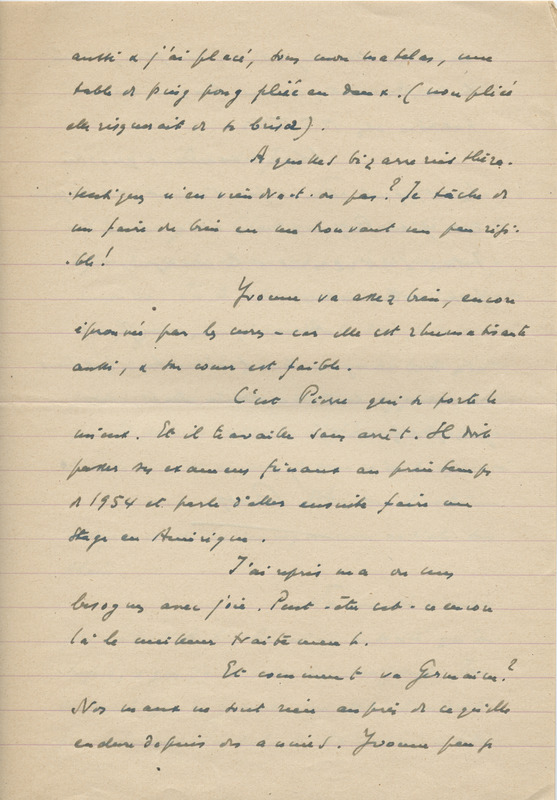 aussi & j'ai placé, sous mon matelas, une
table de ping pong pliée en deux. (non pliée
elle risquerait de se briser).
A quelles bizarreries théra-
-peutiques n'en viendrait-on pas? Je tâche de
me faire du bien en me trouvant un peu risi-
-ble!
Yvonne va assez bien, encore
éprouvée par les cures – car elle est rhumatisante
aussi, & son cœur est faible.
C'est Pierre qui se porte le
mieux. Et il travaille sans arrêt. Il doit
passer ses examens finaux au printemps
de 1954 et parle d'aller ensuite faire un
stage en Amérique.
J'ai repris ma ou mes
besognes avec joie. Peut-être est-ce encore
là le meilleur traitement.
Et comment va Germaine?
Nos maux ne sont rien auprès de ce qu'elle
endure depuis des années. Yvonne